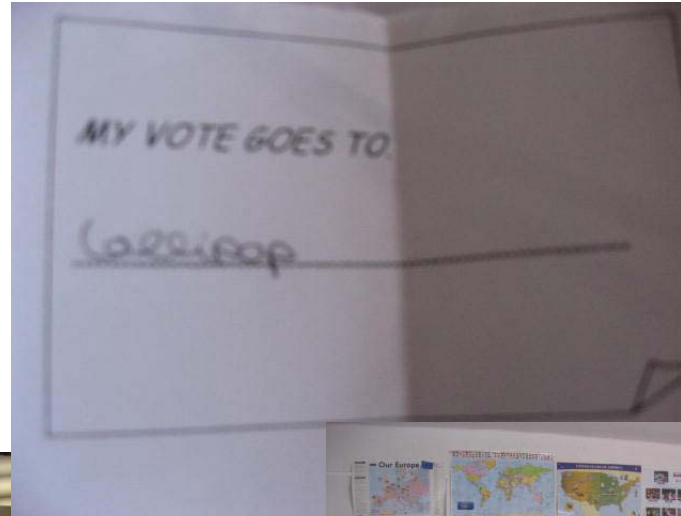 MY VOTE GOES TO:
Lollipop
Our Europe